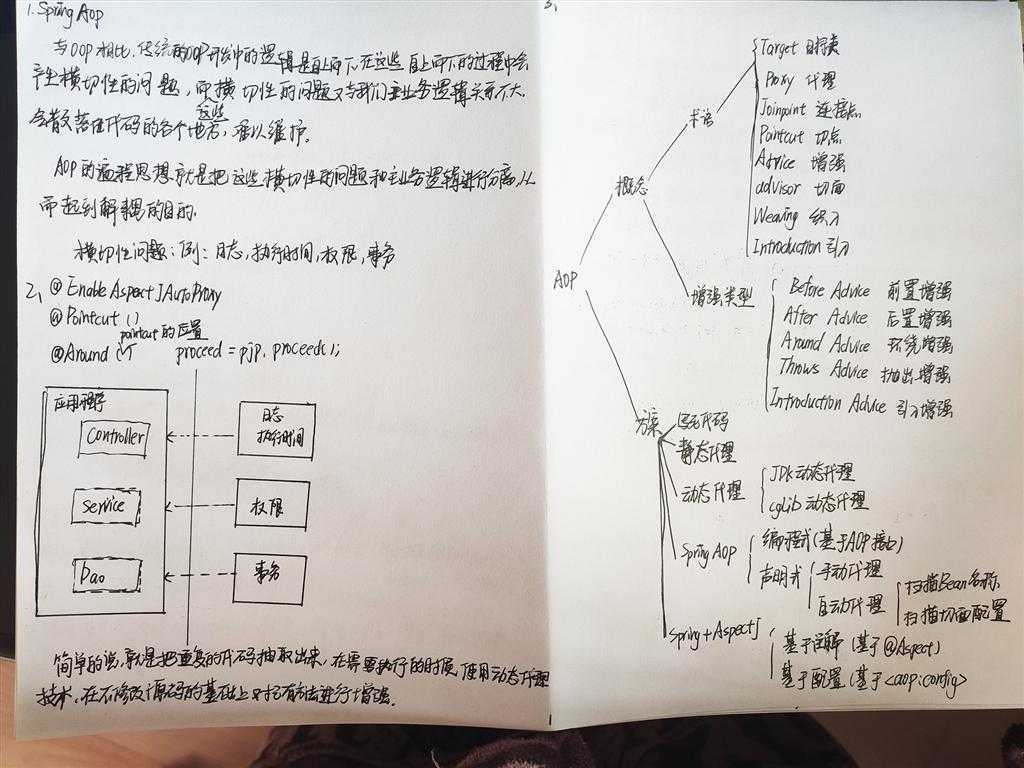 1. Spring AOP
与OOP相比,传统的OOP开发中的逻辑是自上而下,在这些自上而下的过程中会
产生横切性的问题,而横切性的问题又与我们主业务逻辑关系不大,
这些
会散落在代码的各个地方,难以维护。
AOP的编程思想就是把这些横切性的问题和主业务逻辑进行分离,从
而起到解耦的目的.
横切性问题:例:日志,执行时间,权限,事务
2、@EnableAspectJAutoProxy
@Pointcut()
pointcut的位置
@Around proceed = pjp.proceed();
应用程序
Controller
日志
执行时间
service
权限
Dao
事务
简单的说,就是把重复的代码抽取出来,在需要执行的时候,使用动态代理
技术,在不修改源码的基础上,对已有方法进行增强.
3、
AOP
概念
术语
Target 目标类
Proxy 代理
Joinpoint 连接点
Pointcut 切点
Advice 增强
advisor 切面
Weaving 织入
Introduction 引入
增强类型
Before Advice 前置增强
After Advice 后置增强
Around Advice 环绕增强
Throws Advice 抛出增强
Introduction Advice 引入增强
方案
写死代码
静态代理
动态代理
JDK动态代理
cglib动态代理
Spring AOP
编程式(基于AOP接口)
声明式
手动代理
自动代理
扫描Bean名称
扫描切面配置
Spring+AspectJ
基于注解(基于@Aspect)
基于配置(基于<aop:config>